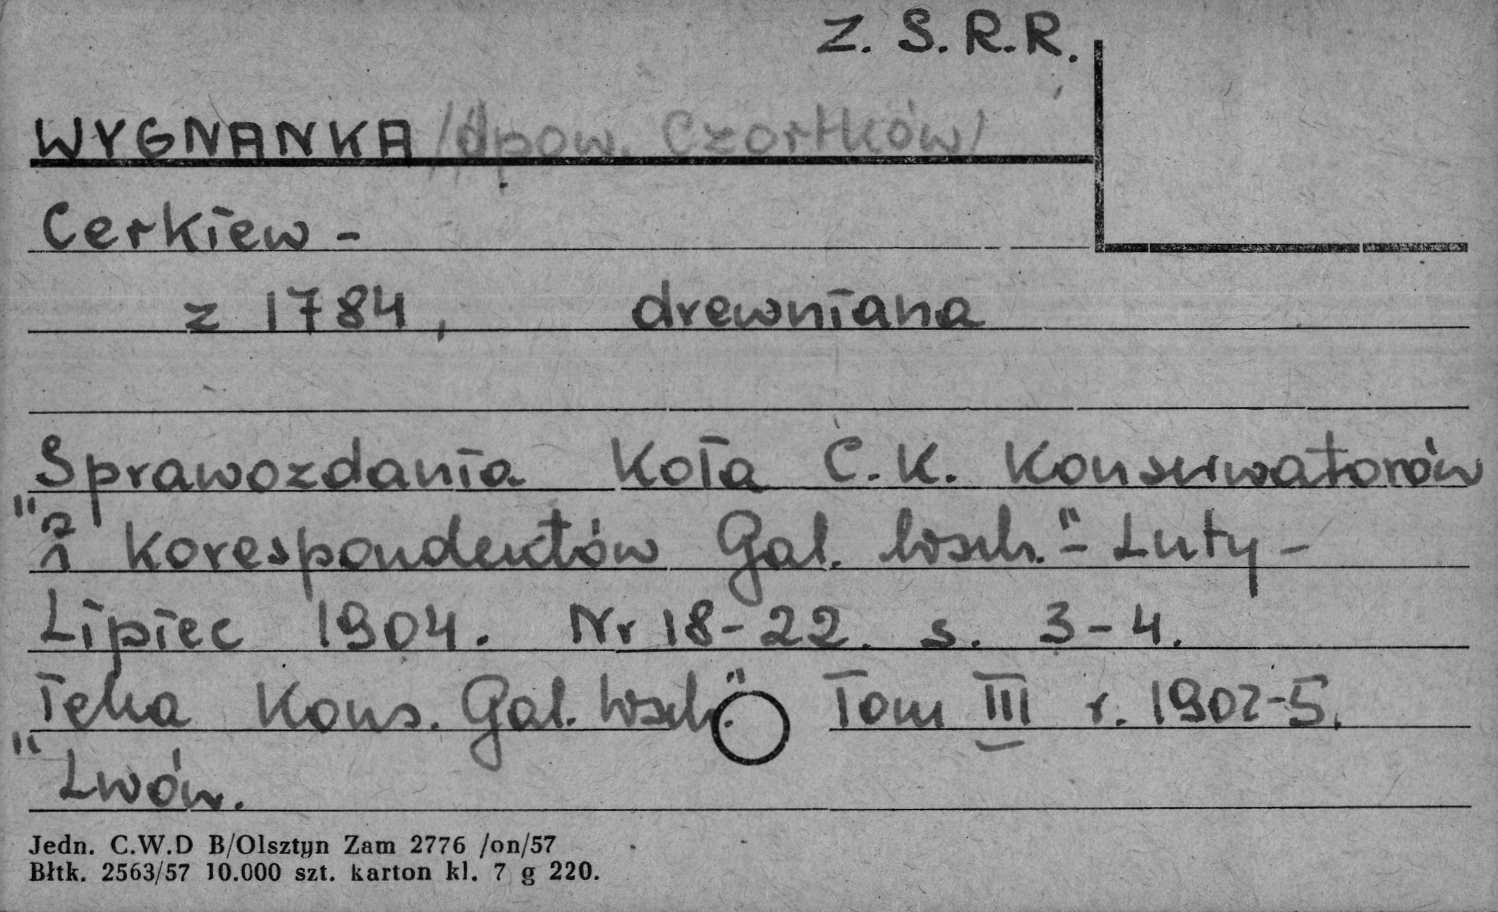 Z. S. R. R.
WYGNANKA /pow. Czortków/
Cerkiew -
z 1784, drewniana
Sprawozdania Koła C. K. Konserwatorów
i korespondentów Gal. Wsch." - Luty -
Lipiec 1904. Nr 18-22. s. 3-4.
"Teka Kons. Gal. Wsch." Tom III r. 1902-5.
Lwów.
Jedn. C.W.D B/Olsztyn Zam 2776 /on/57
Błtk. 2563/57 10.000 szt. karton kl. 7 g 220.